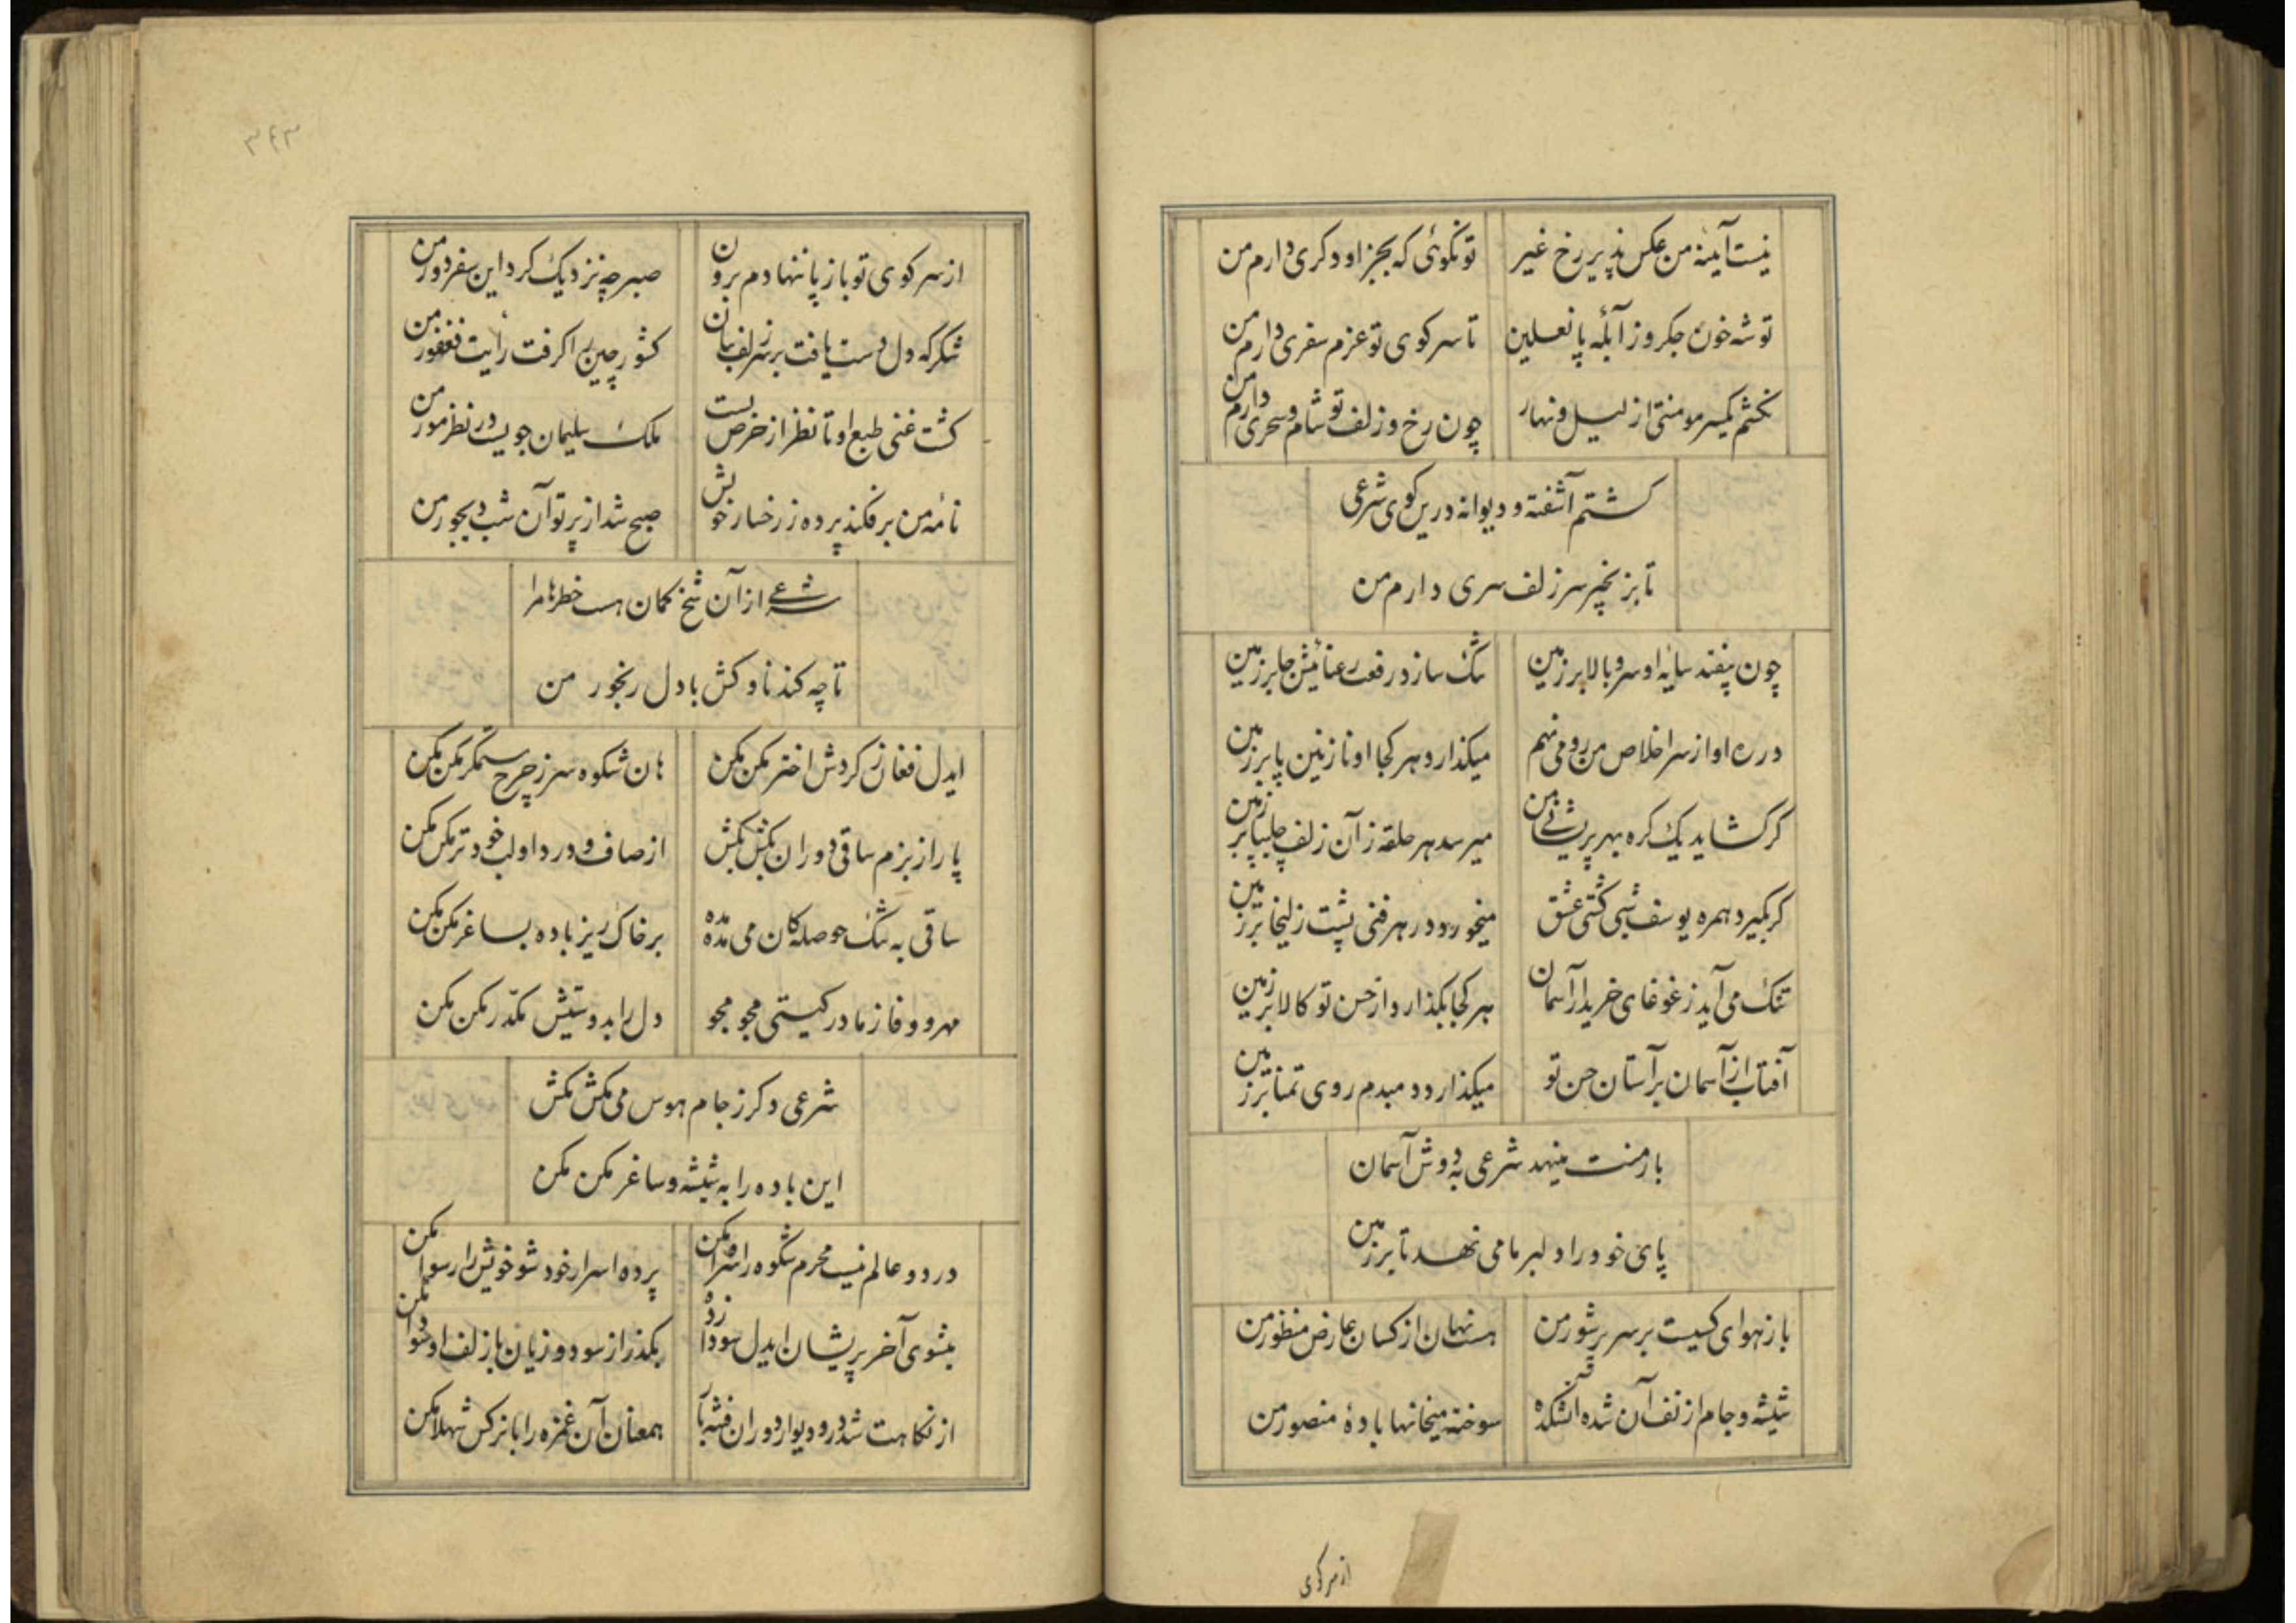 نیست آینهٔ من عکس پذیر رخ غیر تو نگوئی که بجز او دکری دارم من
توشه خون جکر و ز آبلهٔ پا نعلین تا سر کوی تو عزم سفری دارم من
نکشم یکسر مو منتی از لیل و نهار چون رخ و زلف تو شام و سحری دارم من
کشتم آشفته و دیوانه درین کوی شرعی
تا بزنجیر سر زلف سری دارم من
چون بیفتد سایهٔ او سرو بالا بر زمین تنک سازد رفعت رعنائیش جا بر زمین
در ره او از سر اخلاص من رو می نهم میکذارد هر کجا او نازنین پا بر زمین
کر کشاید یک کره بهر پریشانی من میرسد هر حلقه ز آن زلف چلیپا بر زمین
کر بکیرد همره یوسف شبی کشتی عشق میخورد در هر فنی پشت زلیخا بر زمین
تنک می آید ز غوغای خریدار آسمان هر کجا بکذارد از حسن تو کالا بر زمین
آفتاب از آسمان بر آستان حسن تو میکذارد دمبدم روی تمنا بر زمین
بار منت مینهد شرعی به دوش آسمان
پای خود را دلبر ما می نهد تا بر زمین
باز هوای کیست بر سر پر شور من هست نهان از کسان عارض منظور من
شیشه و جام از تف آن شده آتشکده سوخته میخانها بادهٔ منصور من
از سر کوی
۳۴۳
از سر کوی تو باز پا ننهادم برون صبر چه نزدیک کرد این سفر دور من
شکر که دل دست یافت بر سر زلف بتان کشور چین را کرفت رایت فغفور من
کشت غنی طبع او تا نظر از حرص بست ملک سلیمان جویست در نظر مور من
تا مه من بر فکند پرده ز رخسار خویش صبح شد از پرتو آن شب دیجور من
شرعی از آن شخ کمان هست خطرها مرا
تا چه کند ناوکش با دل رنجور من
ایدل فغان ز کردش اختر مکن مکن هان شکوه سر ز چرخ ستمکر مکن مکن
پا را ز بزم ساقی دوران بکش بکش از صاف و درد او لب خود تر مکن مکن
ساقی به تنک حوصله کان می مده مده بر خاک ریز باده بساغر مکن مکن
مهر و وفا ز مادر کیتی مجو مجو دل را بدوستیش مکدر مکن مکن
شرعی دکر ز جام هوس می مکش مکش
این باده را به شیشه و ساغر مکن مکن
در دو عالم نیست محرم شکوه را سر وا مکن پرده اسرار خود شو خویش را رسوا مکن
میشوی آخر پریشان ایدل سودا زده بکذر از سود و زیان با زلف او سودا مکن
از نکاهت شد در و دیوار دوران فتنه بار همعنان آن غمزه را با نرکس شهلا مکن